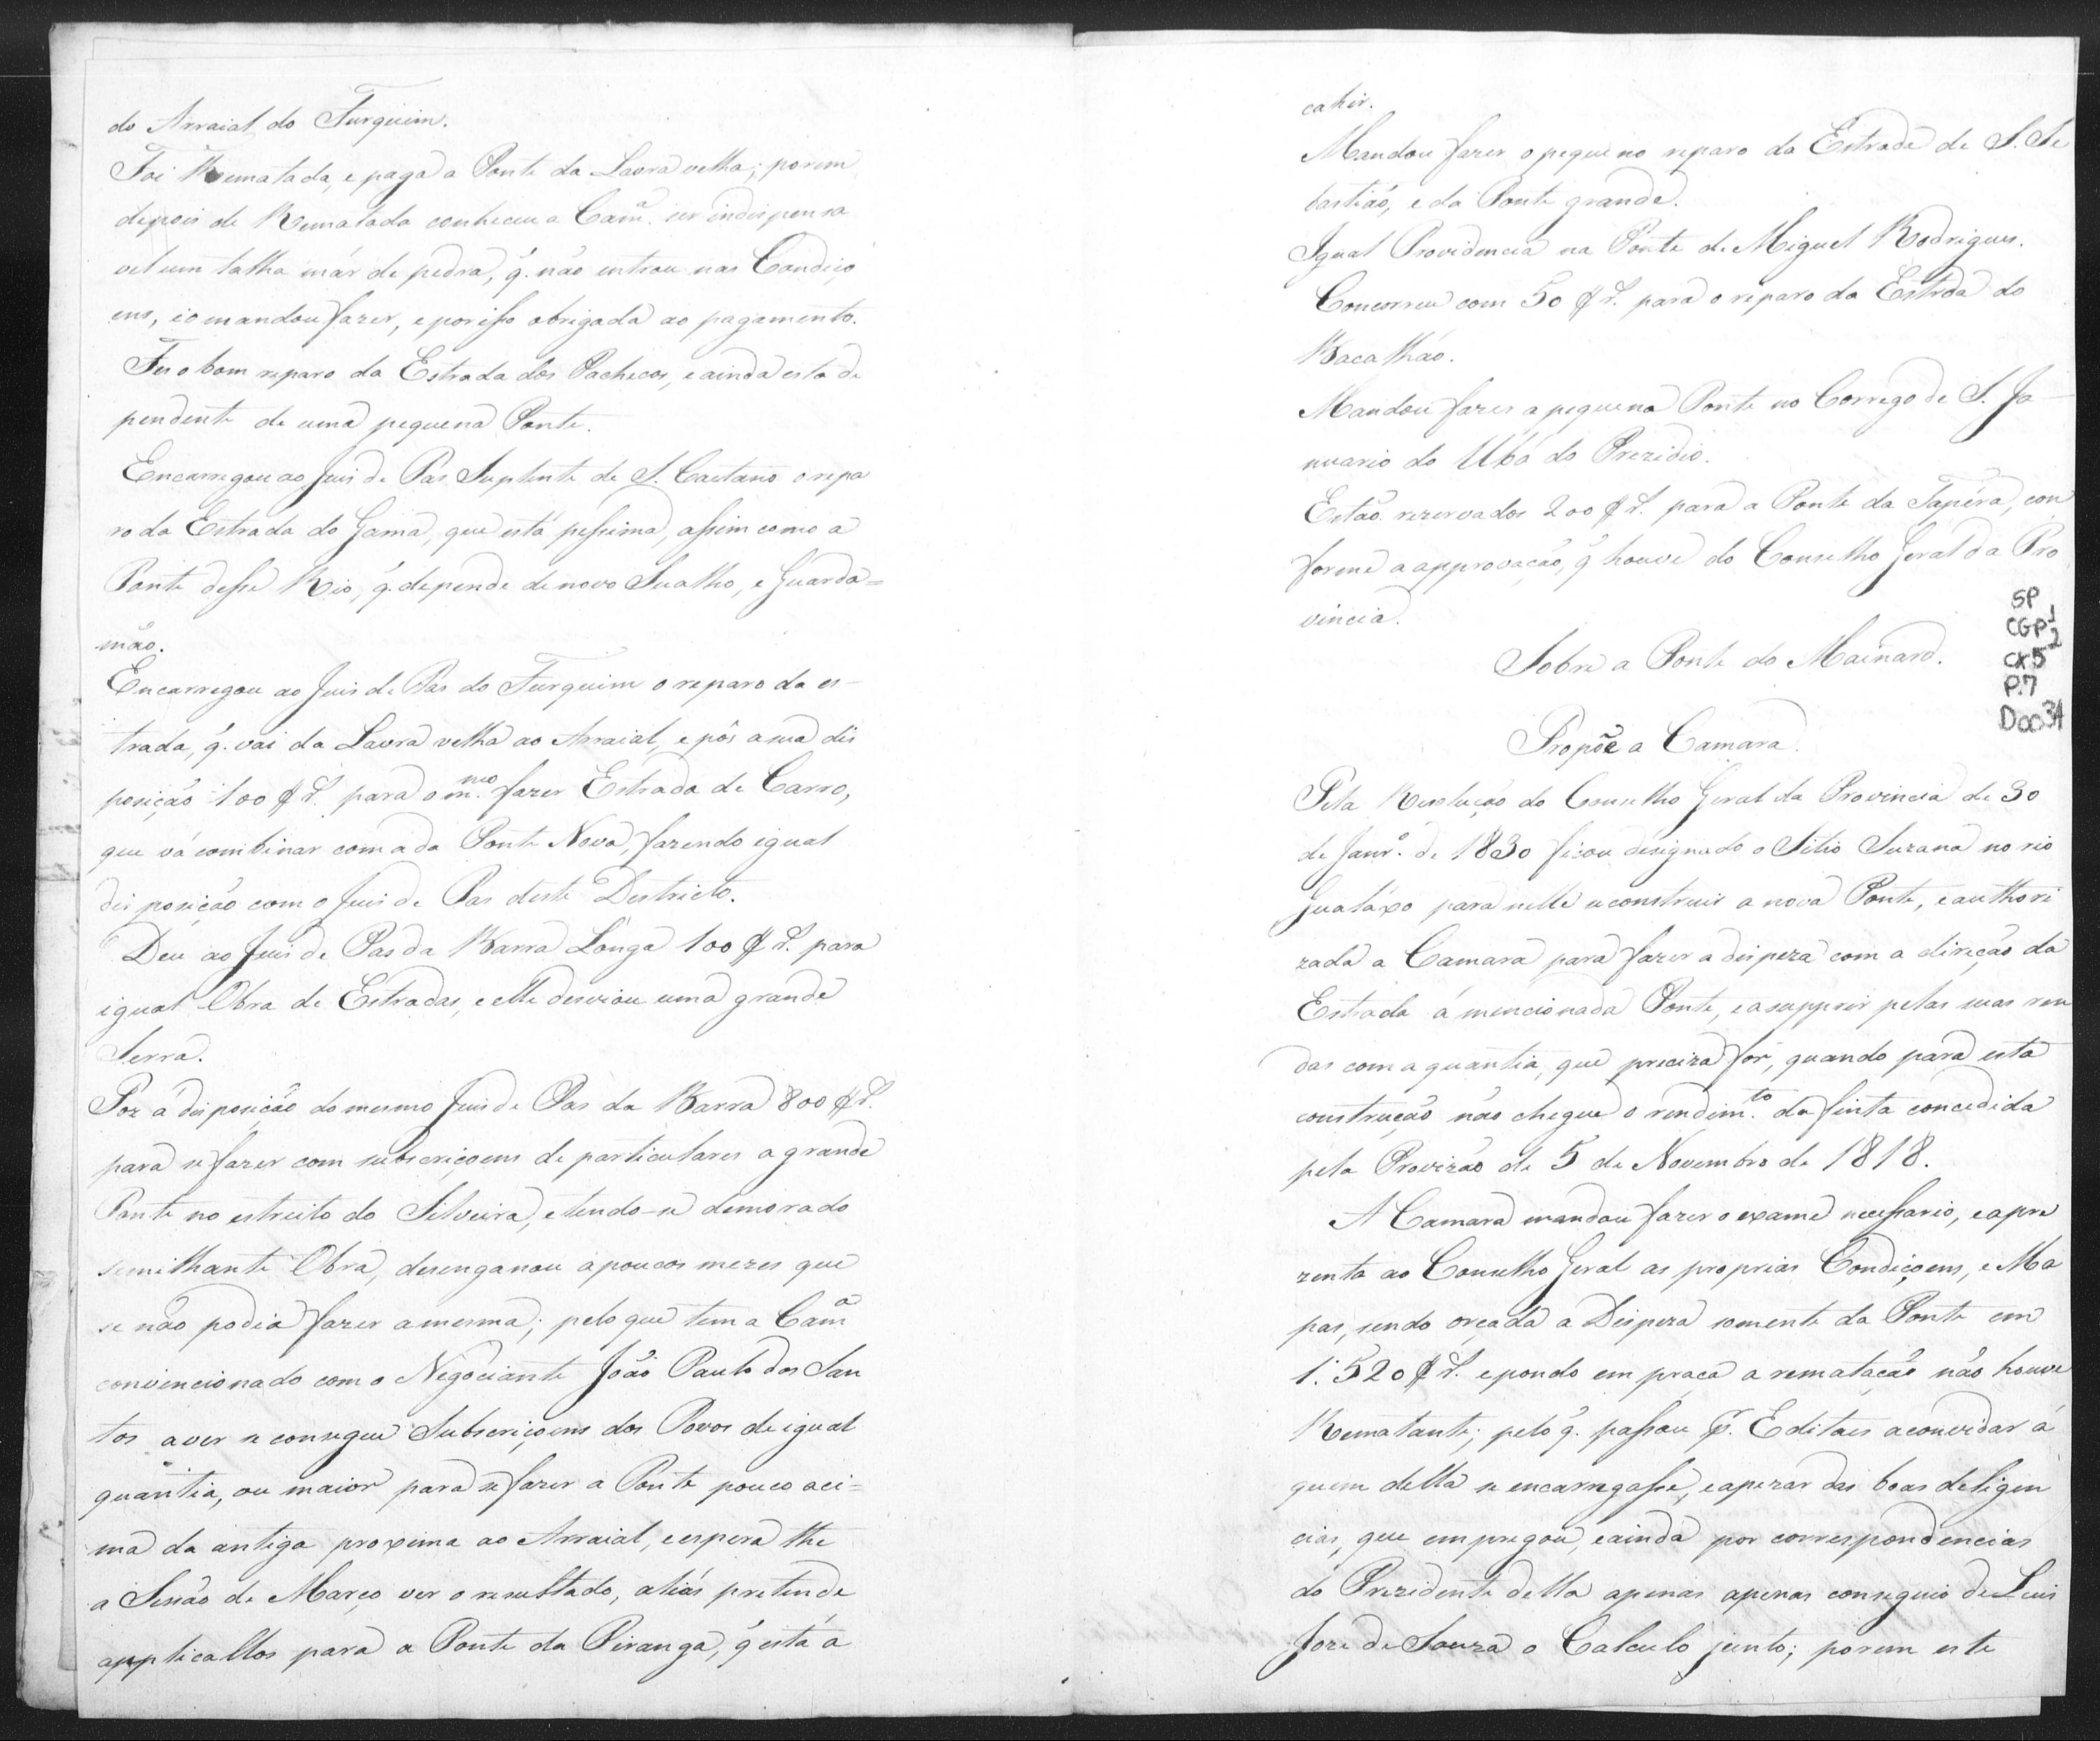 do Arraial do Furquim.
Foi Rematada, e paga a Ponte da Lavra velha; porem
depois de Rematada conheceu a Camª. ser indispensa
vel um talha már de pedra, q̃. não entrou nas Condiço
ens, e o mandou fazer, e por isso obrigada ao pagamento.
Fes o bom reparo da Estrada dos Pachecos, e ainda esta de
pendente de uma pequena Ponte.
Encarregou ao Juis de Pas Suplente de S. Caetano o repa
ro da Estrada do Gama, que está pessima, assim como a
Ponte desse Rio, q̃. depende de novo Sualho, e Guarda=
mão.
Encarregou ao Juis de Pas do Furquim o reparo da es-
trada, q̃. vai da Lavra velha ao Arraial, e pôs a sua dis
posição 100$rs. para o m.mo fazer Estrada de Carro,
que vá combinar com a da Ponte Nova, fazendo igual
disposição com o Juis de Pas deste Destricto.
Deu ao Juis de Pas da Barra Longa 100$rs. para
igual Obra de Estradas, e elle desviou uma grande
Serra.
Poz á disposição do mesmo Juis de Pas da Barra 800$rs.
para se fazer com subscriçoens de particulares a grande
Ponte no estreito do Silveira, e tendo-se demorado
similhante Obra, desenganou a poucos mezes que
se não podia fazer a mesma; pelo que tem a Camª
convencionado com o Negociante João Paulo dos San
tos a ver se consegue Subscriçoens dos Povos de igual
quantia, ou maior para se fazer a Ponte pouco aci=
ma da antiga proxima ao Arraial, e espera lhe
a Sesão de Março ver o resultado, aliás pretende
applicallos para a Ponte da Piranga, q̃ está a
cahir.
Mandou fazer o pequeno reparo da Estrada de S. Se
bastião, e da Ponte grande.
Igual Providencia na Ponte de Miguel Rodrigues.
Concorreu com 50$rs. para o reparo da Estrda do
Bacalháo.
Mandou fazer a pequena Ponte no Corrego de S. Ja-
nuario do Ubá do Prezidio.
Estão rezervados 200$rs. para a Ponte da Tapéra, con
forme a approvação, q̃ houve do Conselho Geral da Pro
vincia.
SP
CGP 1
2
CX5
P.7
Doc 34
Sobre a Ponte do Mainard.
Propõe a Camara.
Pela Rezolução do Conselho Geral da Provincia de 30
de Janr.º de 1830 ficou designado o Sitio Suzana no rio
Gualaxo para nelle se construir a nova Ponte, e authori
zada a Camara para fazer a dispeza com a direção da
Estrada á mencionada Ponte, e a supprir pelas suas ren
das com a quantia, que preciza fôr, quando para esta
construção não chegue o rendim.to da finta concedida
pela Provizão de 5 de Novembro de 1818.
A Camara mandou fazer o exame necessario, e apre
zenta ao Conselho Geral as proprias Condiçoens, e Ma
pas, sendo orçada a Dispeza somente da Ponte em
1:520$rs. e pondo em praça a rematação não houve
Rematante; pelo q̃. passou pr. Editaes a convidar á
quem della se encarregasse, e apezar das boas deligen
cias, que empregou, e ainda por correspondencias
do Prezidente della apenas apenas conseguio de Luis
Joze de Souza o Calculo junto; porem este